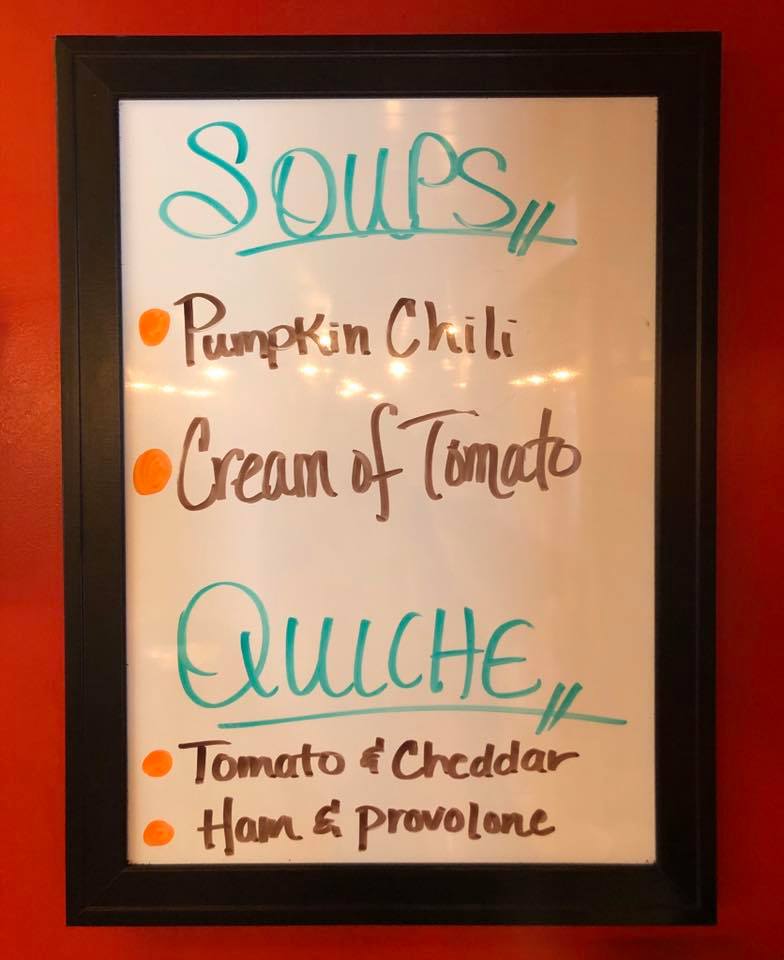 SOUPS
Pumpkin Chili
Cream of Tomato
QUICHE
Tomato & Cheddar
Ham & Provolone